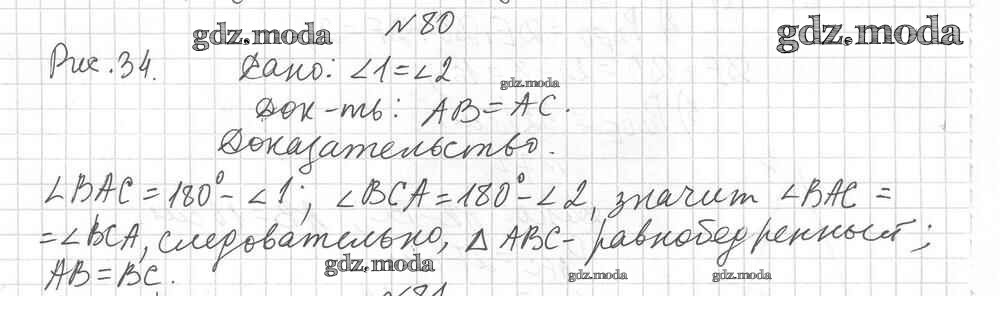 №80
gdz.moda
gdz.moda
Рис. 34. Дано: ∠1=∠2
gdz.moda
Док-ть: AB=AC.
Доказательство.
∠BAC=180°-∠1; ∠BCA=180°-∠2, значит ∠BAC=
=∠BCA, следовательно, △ABC- равнобедренный;
AB=BC.
gdz.moda
gdz.moda
gdz.moda
№81